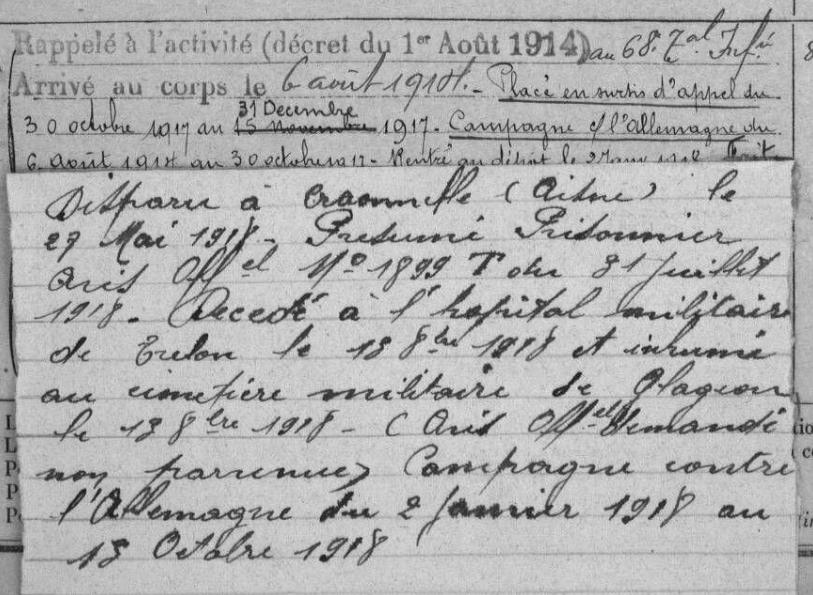 Rappelé à l'activité (décret du 1er Août 1914) au 68e Ral Infie
Arrivé au corps le 6 août 1914. - Placé en sursis d'appel du
31 Decembre
30 octobre 1917 au 15 novembre 1917. - Campagne c/ l'Allemagne du
6 Août 1914 au 30 octobre 1917 - Rentré au dépôt le 2 Janv 1918
Disparu à Craonnelle (Aisne) le
27 Mai 1918 - Presumé Prisonnier
Avis Offel No 1899 T du 31 Juillet
1918. Decedé à l'hopital militaire
de Trelon le 18 8bre 1918 et inhumé
au cimetière militaire de Glageon
le 18 8bre 1918 - (Avis Offel demandé
non parvenue) Campagne contre
l'Allemagne du 2 Janvier 1918 au
18 Octobre 1918